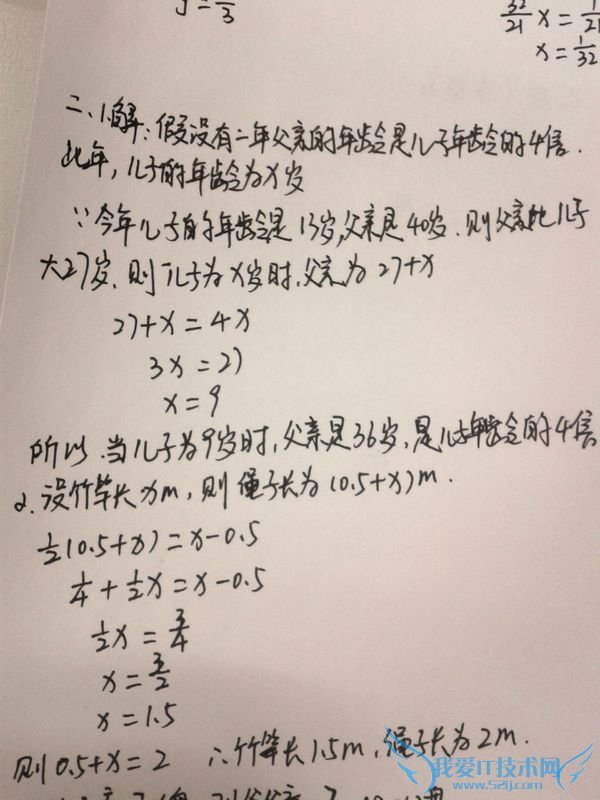 y = 1/3
32/21 x = 1/21
x = 1/32
二、1.解:假设有一年父亲的年龄是儿子年龄的4倍.
此年,儿子的年龄为x岁
∵今年儿子的年龄是13岁,父亲是40岁.则父亲比儿子
大27岁.则儿子为x岁时,父亲为27+x
27+x=4x
3x=27
x=9
所以.当儿子为9岁时,父亲是36岁,是儿子年龄的4倍
2.设竹竿长xm,则绳子长为(0.5+x)m.
1/2(0.5+x)=x-0.5
1/4+1/2x=x-0.5
1/2x=3/4
x=3/2
x=1.5
则0.5+x=2 ∴竹竿长1.5m,绳子长为2m.
我爱IT技术网